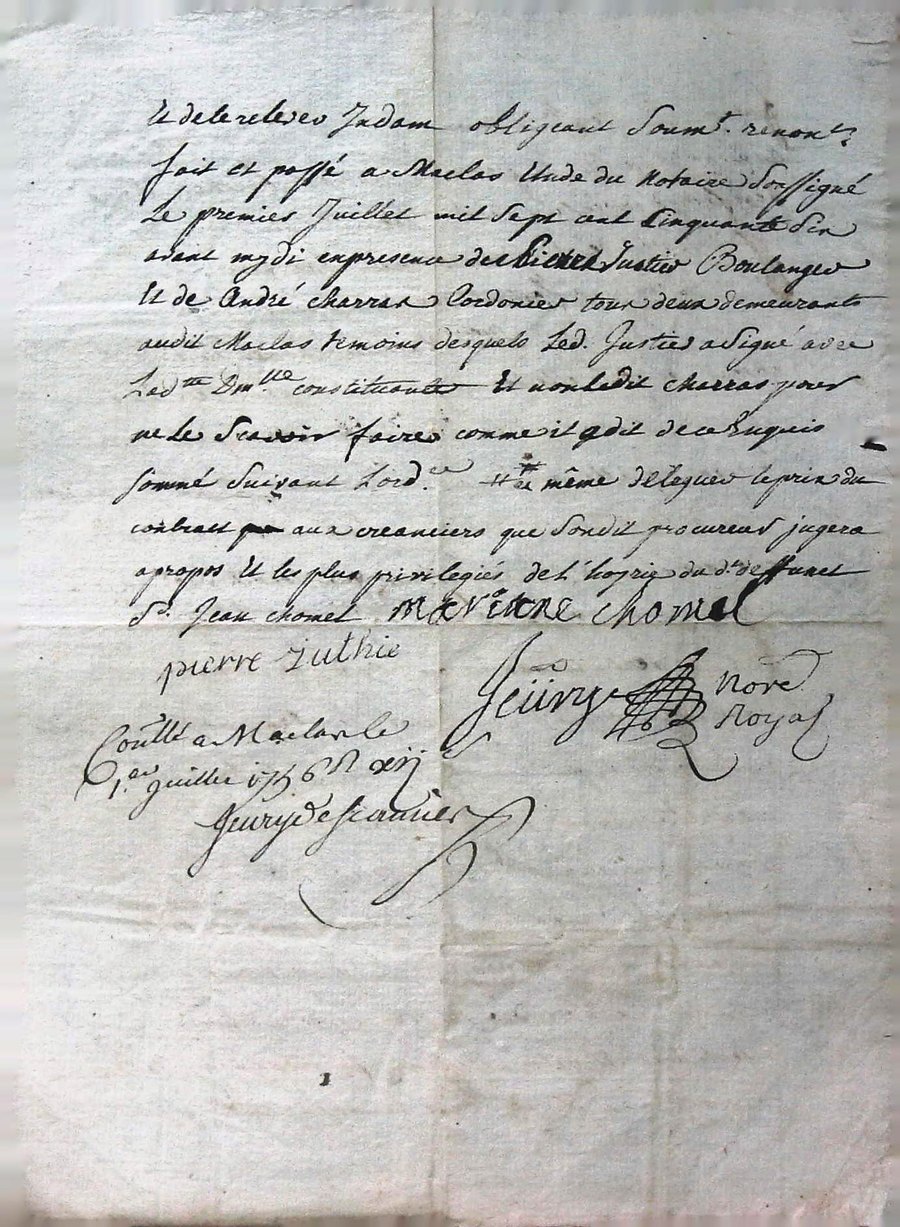 Et de le relever Indam obligeant Soumt. renont
fait et passé a Maclas Etude du Notaire Soussigné
Le premier Juillet mil Sept cent Cinquante Six
avant mydi en presence de Pierre Justier Boulanger
Et de André charras Cordonier tous deux demeurants
audit Maclas temoins desquels Led. Justier a Signé avec
Ladtte Dmlle constituante Et non ledit charras pour
ne Le Scavoir faire comme il a dit de ce Enquis
Sommé Suivant Lordce même déleguer le prix du
contract aux creanciers que Sondit procureur jugera
apropos Et les plus privilegiés de l'hoyrie du dt deffunct
Sr. Jean chomel marianne chomel
pierre Juthie
Jeüry Nore
Royal
Conllé a Maclas le
1er Juillet 1756